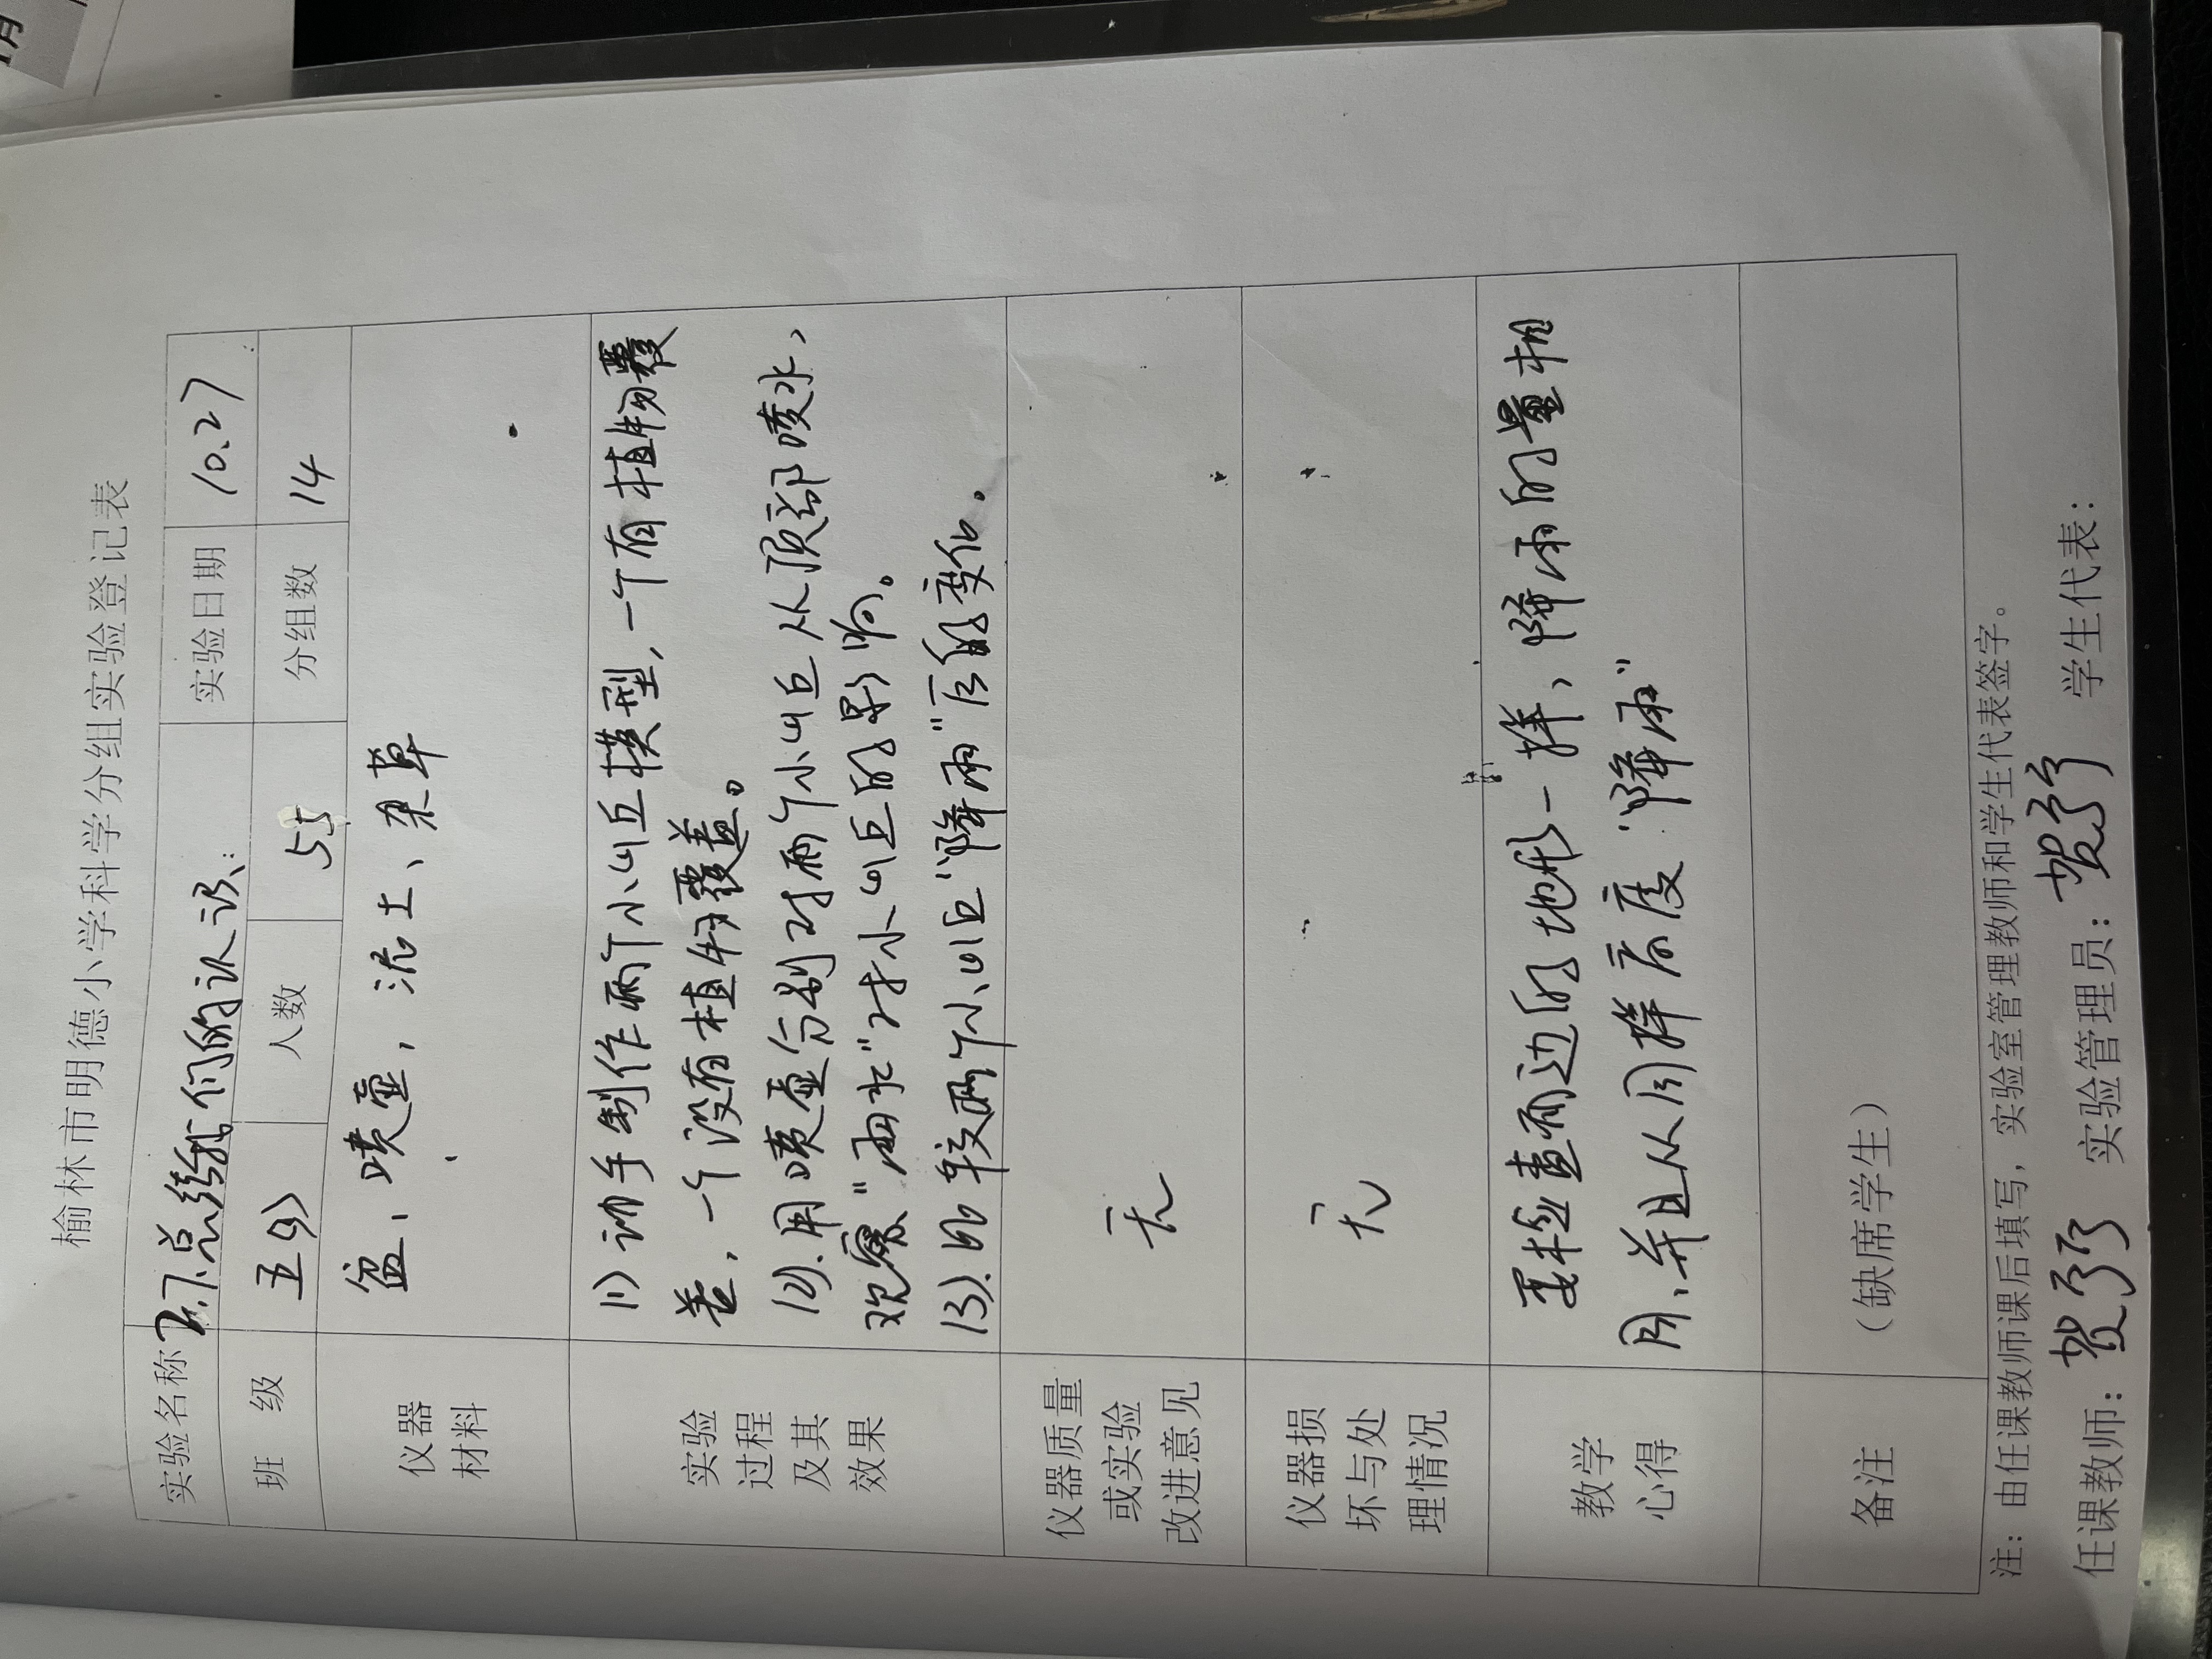 榆林市明德小学科学分组实验登记表
实验名称 2.7.总结我们的认识. 实验日期 10.27
班 级 五(9) 人数 55 分组数 14
仪器材料 盆、喷壶, 泥土、杂草
实验过程及其效果
(1) 动手制作两个小山丘模型,一个有植物覆
盖,一个没有植物覆盖。
(2).用喷壶分别对两个小山丘从顶部喷水、
观察"雨水"对小山丘的影响。
(3).比较两个小山丘"降雨"后的变化。
仪器质量或实验改进意见 无
仪器损坏与处理情况 无
教学心得
要检查两边的地形一样、降雨的量相
同、并且从同样高度"降雨"
备注 (缺席学生)
注:由任课教师课后填写,实验室管理教师和学生代表签字。
任课教师: 贺 实验管理员: 贺 学生代表:
月